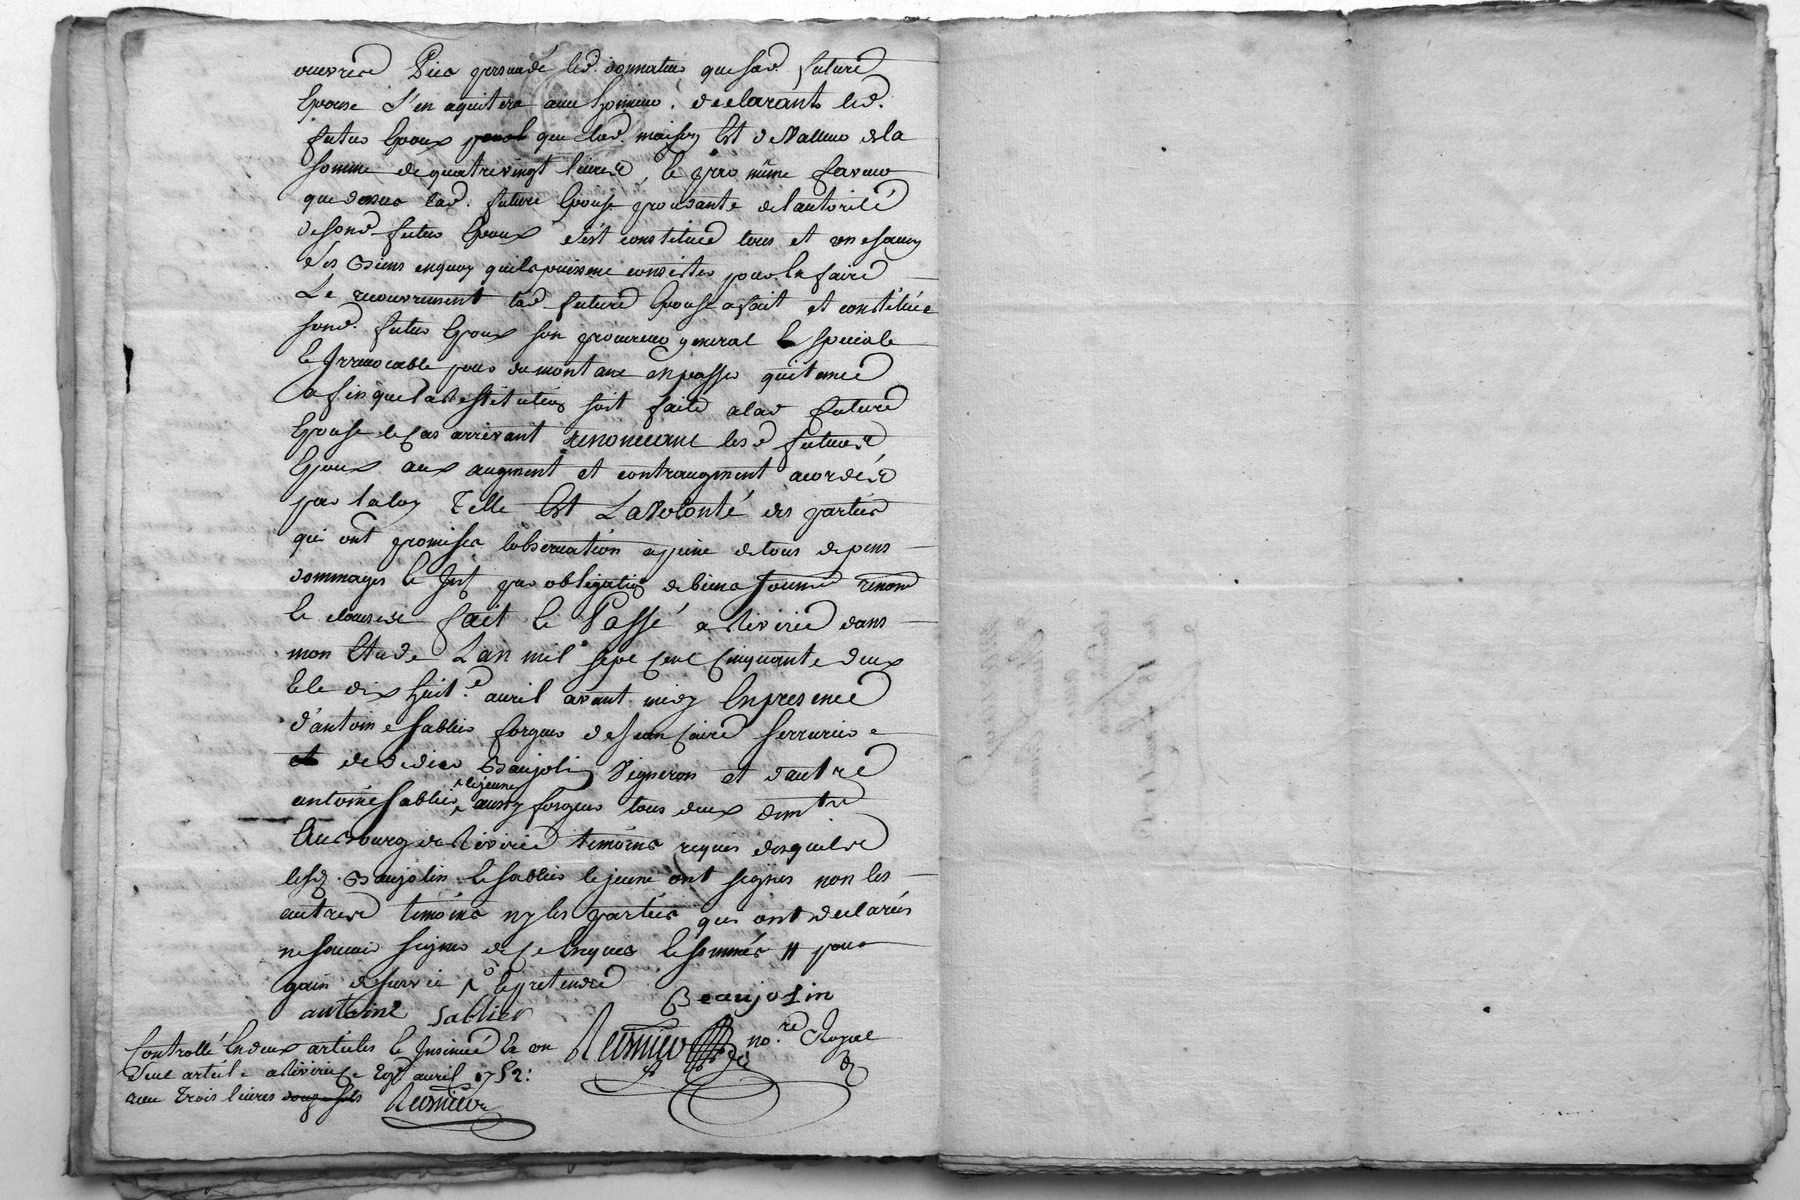 ouvres Dieu persuadé led. donnateur que sad. future
Epouse s'en aquitera avec honneur, declarants led.
futur Epoux que lad. maison Est de Valleur de la
somme de quatre vingt livres, Et par même faveur
que dessus lad. future Epouse procedante de l'autorité
de sond. futur Epoux s'est constituée tous et un chacun
ses Biens en quoy quils puissent consister pour En faire
Le recouvrement lad future Epouse a fait et constitué
sond. futur Epoux son procureur general Et speciale
Et Irrevocable pour du montant en passer quitance
afin que la Restitution soit faite a lad future
Epouse le Cas arrivant renonceant lesd futurs
Epoux aux augment et contraugment acordés
par la loy Telle Est La Volonté des parties
qui ont promises l'observation a peine de tous depens
dommages Et Int. par obligation de biens soumis renon
Et clauses fait Et Passé a Riverie dans
mon Etude L'an mil sept Cent Cinquante deux
Et le dix huit.e avril avant midy En presence
d'antoine Sablier forgeur de Jean Caire Serrurier
et de Didier Baujolin Vigneron et d'autre
antoine Sablier le jeune aussy forgeur tous deux dem.t
Au Bourg de Riverie temoins requis desquels
lesd. Baujolin Et Sablier le jeune ont signés non les
autres temoins ny les parties qui ont declarés
ne sçavoir signer de Ce Enquis Et sommés // pour
gain de survie Et pretendre
antoine Sablier Beaujolin
no.re Royal
Controllé En deux articles Et Insinué En un
seul article a Riverie Ce avril 1752:
avec Trois livres douze sols